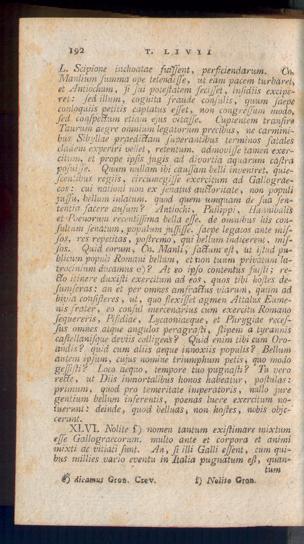 192 T. LIVII
L. Scipione inchoatae fuissent, perficiendarum. Cn.
Manlium summa ope tetendisse, ut eam pacem turbaret,
et Antiochum, si sui potestatem fecisset, insidiis excipe-
ret: sed illum, cognita fraude consulis, quum saepe
conloquiis petitis captatus esset, non congressum modo,
sed conspectum etiam ejus vitasse. Cupientem transire
Taurum aegre omnium legatorum precibus, ne carmini-
bus Sibyllae praedictam superantibus terminos fatales
cladem experiri vellet, retentum, admovisse tamen exer-
citum, et prope ipsis jugis ad divortia aquarum castra
posuisse. Quum nullam ibi caussam belli inveniret, quie-
scentibus regiis, circumegisse exercitum ad Gallograe-
cos: cui nationi non ex senatus auctoritate, non populi
jussu, bellum inlatum. quod quem umquam de sua sen-
tentia facere ausum? Antiochi, Philippi, Hannibalis
et Poenorum recentissima bella esse. de omnibus his con-
sultum senatum, populum jussisse. saepe legatos ante mis-
sos, res repetitas, postremo, qui bellum indicerent, mis-
sos. Quid eorum, Cn. Manli, factum est, ut istud pu-
blicum populi Romani bellum, et non tuum privatum la-
trocinium ducamus e)? At eo ipso contentus fuisti; re-
cto itinere duxisti exercitum ad eos, quos tibi hostes de-
sumseras: an et per omnes amfractus viarum, quum ad
bivia consisteres, ut, quo flexisset agmen Attalus Eume-
nis frater, eo consul mercenarius cum exercitu Romano
sequereris, Pisidiae, Lycaoniaeque, et Phrygiae reces-
sus omnes atque angulos peragrasti, stipem a tyrannis
castellanisque deviis colligens? Quid enim tibi cum Oro-
andis? quid cum aliis aeque innoxiis populis? Bellum
autem ipsum, cujus nomine triumphum petis, quo modo
gessisti? Loco aequo, tempore tuo pugnasti? Tu vero
recte, ut Diis inmortalibus honos habeatur, postulas:
primum, quod pro temeritate imperatoris, nullo jure
gentium bellum inferentis, poenas luere exercitum no-
luerunt: deinde, quod belluas, non hostes, nobis objc-
cerunt.
XLVI. Nolite f) nomen tantum existimare mixtum
esse Gallograecorum. multo ante et corpora et animi
mixti ac vitiati sunt. An, si illi Galli essent, cum qui-
bus millies vario eventu in Italia pugnatum est, quan-
tum
e) dicamus Gron. Crev. f) Nolito Gron.